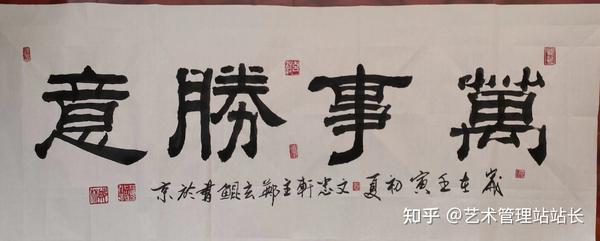 萬事勝意
歲在壬寅初夏 文軒主鄭玄鯤書於京
知乎 @艺术管理站站长